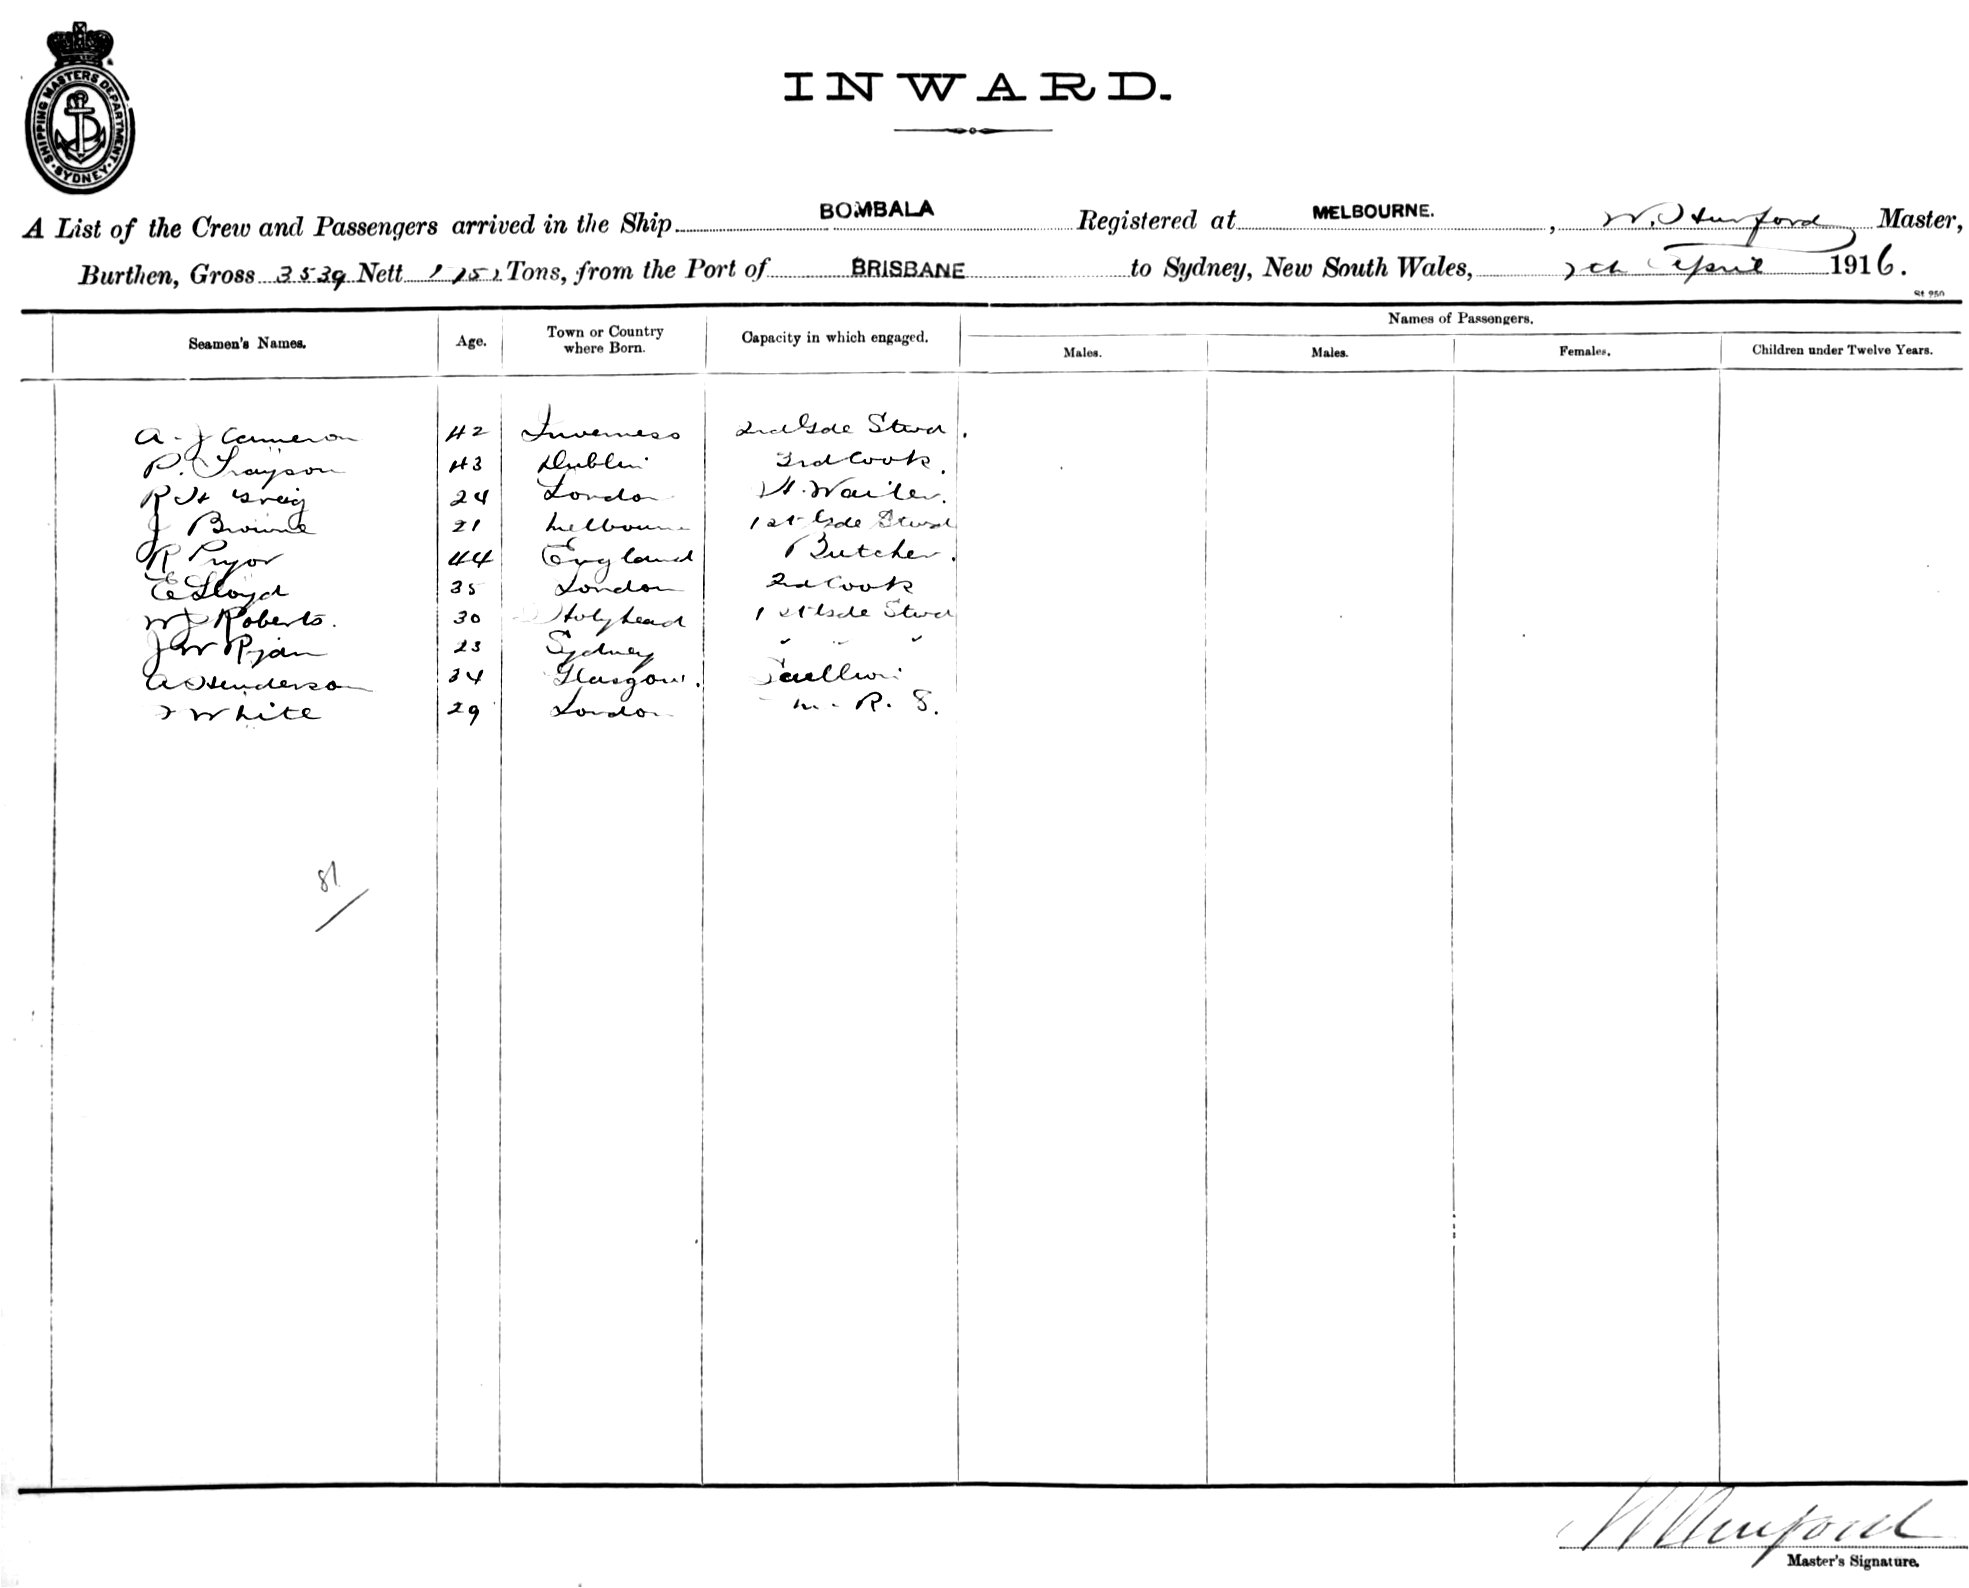 SHIPPING MASTERS DEPARTMENT
SYDNEY
INWARD.
A List of the Crew and Passengers arrived in the Ship BOMBALA Registered at MELBOURNE. , W. Hurford Master,
Burthen, Gross 3539 Nett Tons, from the Port of BRISBANE to Sydney, New South Wales, 7th April 1916.
St 950
Seamen's Names. Age. Town or Country where Born. Capacity in which engaged. Names of Passengers.
Males. Males. Females. Children under Twelve Years.
A. J Cameron 42 Inverness 2nd Gde Stwd.
P. Grayson 43 Dublin 3rd Cook.
R H Greig 24 London H. Waiter.
J Browne 21 Melbourne 1st Gde Stwd
R Pryor 44 England Butcher.
E Lloyd 35 London 2nd Cook
W J Roberts. 30 Holyhead 1st Gde Stwd
J W Ryan 23 Sydney " " "
A Henderson 34 Glasgow. Scullion
White 29 London M. R. S.
81
W Hurford
Master's Signature.